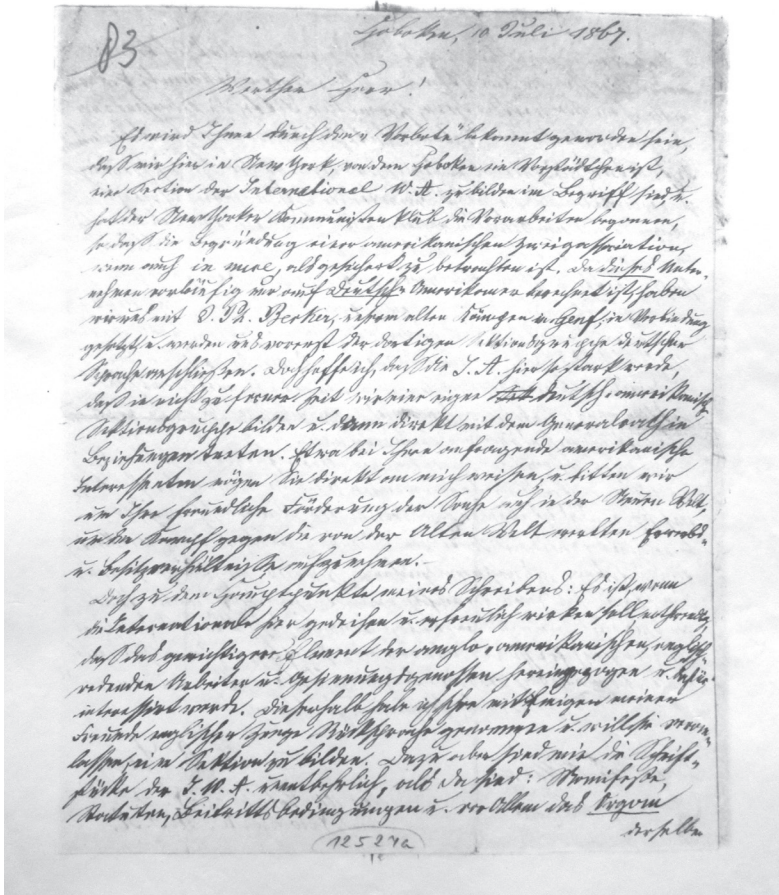 83
Hoboken, 10 Juli 1867.
Werther Herr!
Es wird Ihnen durch den „Vorbote" bekannt geworden sein,
daß wir hier in New York, von dem Hoboken ein Vorstädtchen ist,
eine Section der International W. A. zu bilden im Begriff sind, u.
hat der New Yorker Kommunisten Klub die Vorarbeiten begonnen,
so daß die Begründung einer amerikanischen Zweigassociation,
wenn auch in, als gesichert zu betrachten ist. Da dieses Unter-
nehmen vorläufig nur auf Deutsch-Amerikaner berechnet ist, haben
wir uns mit J. Ph. Becker, unserm alten Kämpen in Genf, in Verbindung
gesetzt, u. werden uns vorerst der dortigen Sektionsgruppe deutscher
Sprache anschließen. Doch hoffe ich, daß die I. A. hier so stark werde,
daß in nicht zu ferner Zeit wir eine eigene deutsch-amerikanische
Sektionsgruppe bilden u. dann direkt mit dem Generalrath in
Beziehungen treten. Etwa bei Ihnen anfragende amerikanische
Interessenten mögen Sie direkt an mich weisen, u. bitten wir
um Ihre freundliche Förderung der Sache auch in der Neuen Welt,
um den Kampf gegen die von der Alten Welt ererbten Erwerbs-
u. Besitzverhältnisse aufzunehmen. –
Doch zu dem Hauptpunkte meines Schreibens: Es ist, wenn
die Internationale hier gedeihen u. erfreulich wirken soll, nothwendig,
daß das gewichtigere Element der anglo-amerikanischen, englisch
redenden Arbeiter u. Gesinnungsgenossen hereingezogen u. dafür
interessirt werde. Dieserhalb habe ich schon mit Einigen meiner
Freunde englischer Zunge Rücksprache genommen u. will sie veran-
lassen, eine Sektion zu bilden. Dazu aber sind mir die Schrift-
stücke der I. W. A. unentbehrlich, als da sind: Manifeste,
Statuten, Beitrittsbedingungen u. vor Allem das Organ
derselben
12524a